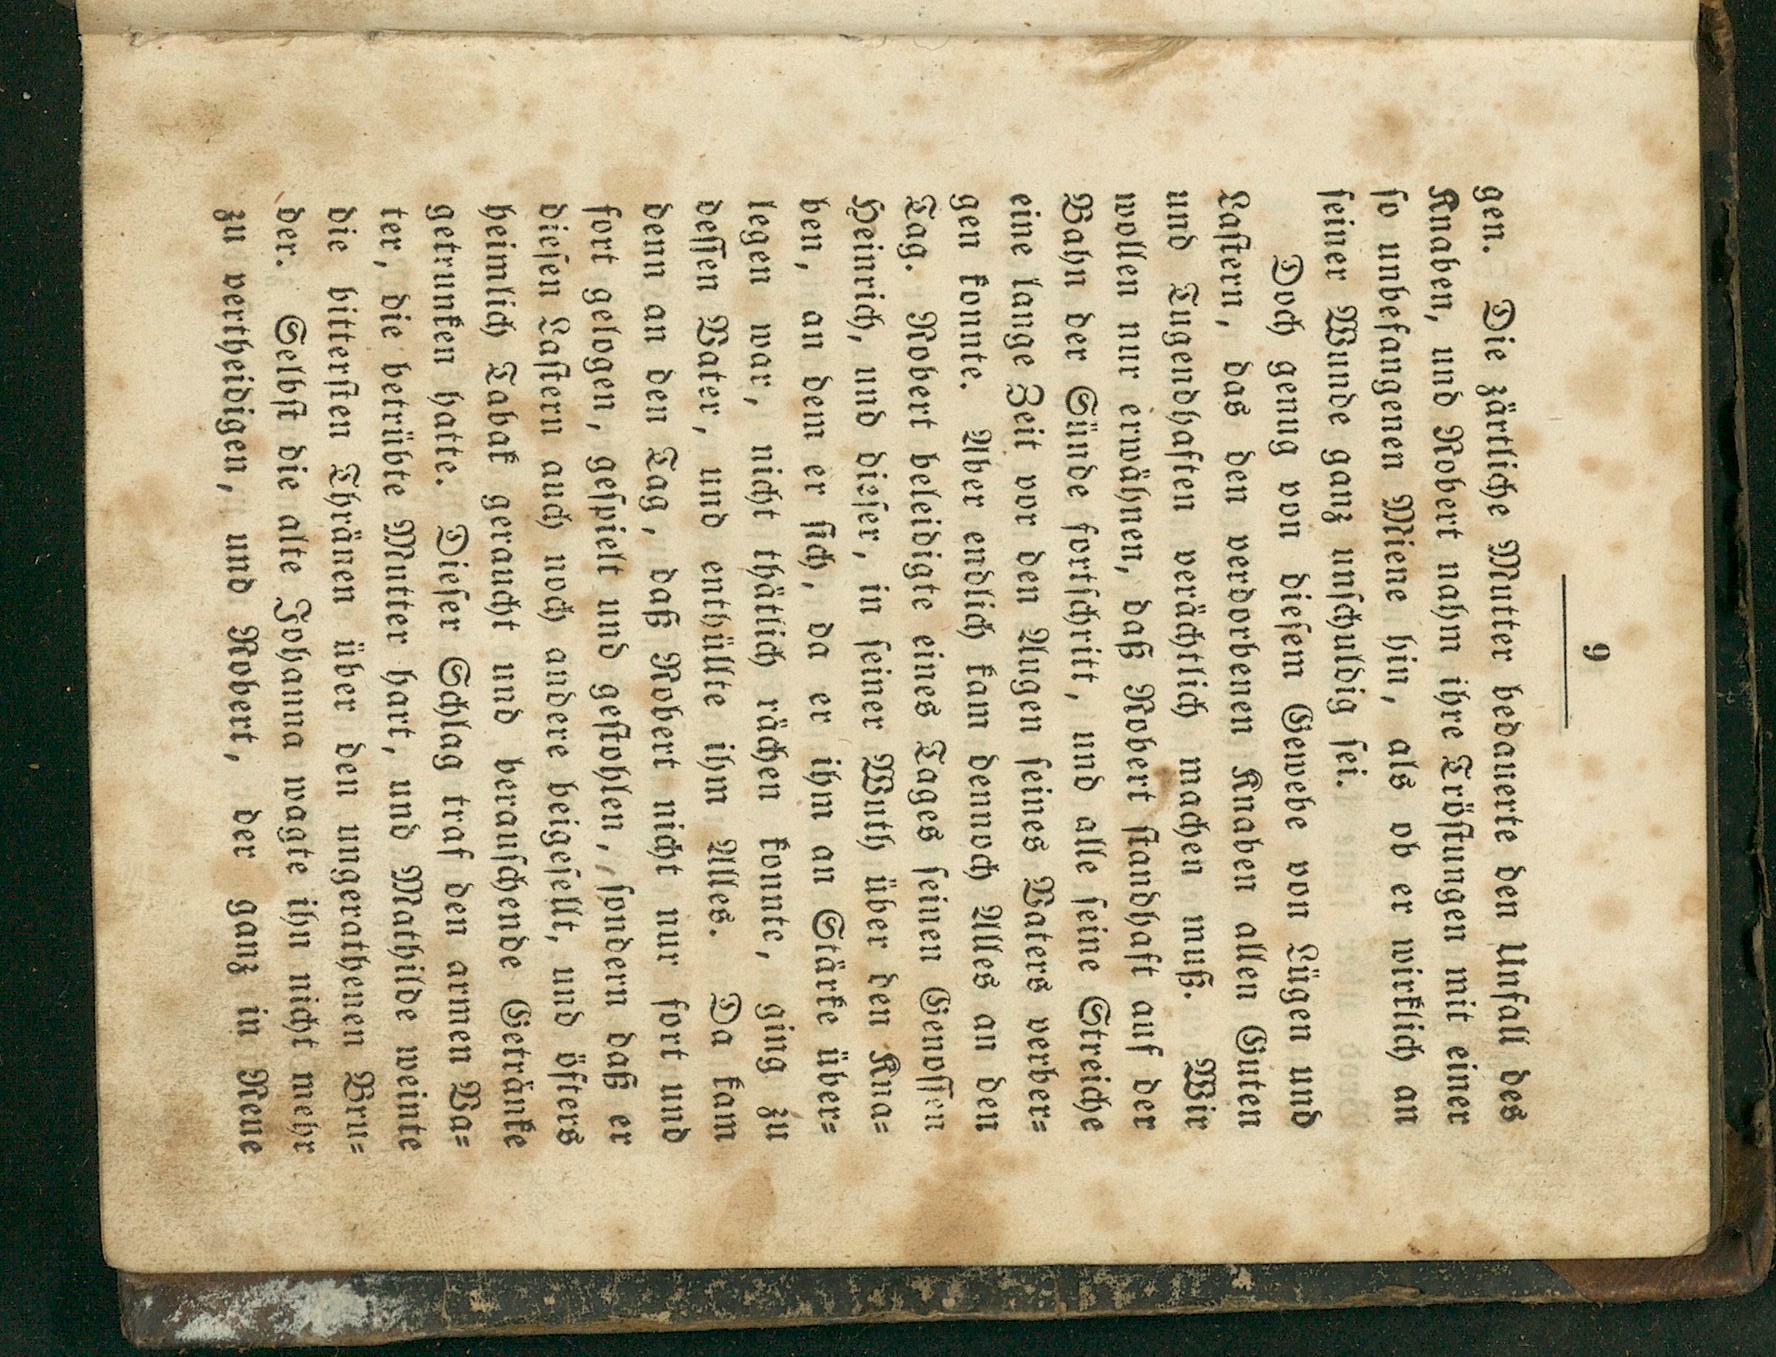 9
gen. Die zärtliche Mutter bedauerte den Unfall des
Knaben, und Robert nahm ihre Tröstungen mit einer
so unbefangenen Miene hin, als ob er wirklich an
seiner Wunde ganz unschuldig sei.
Doch genug von diesem Gewebe von Lügen und
Lastern, das den verdorbenen Knaben allen Guten
und Tugendhaften verächtlich machen muß. Wir
wollen nur erwähnen, daß Robert standhaft auf der
Bahn der Sünde fortschritt, und alle seine Streiche
eine lange Zeit vor den Augen seines Vaters verber=
gen konnte. Aber endlich kam dennoch Alles an den
Tag. Robert beleidigte eines Tages seinen Genossen
Heinrich, und dieser, in seiner Wuth über den Kna=
ben, an dem er sich, da er ihm an Stärke über=
legen war, nicht thätlich rächen konnte, ging zu
dessen Vater, und enthüllte ihm Alles. Da kam
denn an den Tag, daß Robert nicht nur fort und
fort gelogen, gespielt und gestohlen, sondern daß er
diesen Lastern auch noch andere beigesellt, und öfters
heimlich Tabak geraucht und berauschende Getränke
getrunken hatte. Dieser Schlag traf den armen Va=
ter, die betrübte Mutter hart, und Mathilde weinte
die bittersten Thränen über den ungerathenen Bru=
der. Selbst die alte Johanna wagte ihn nicht mehr
zu vertheidigen, und Robert, der ganz in Reue